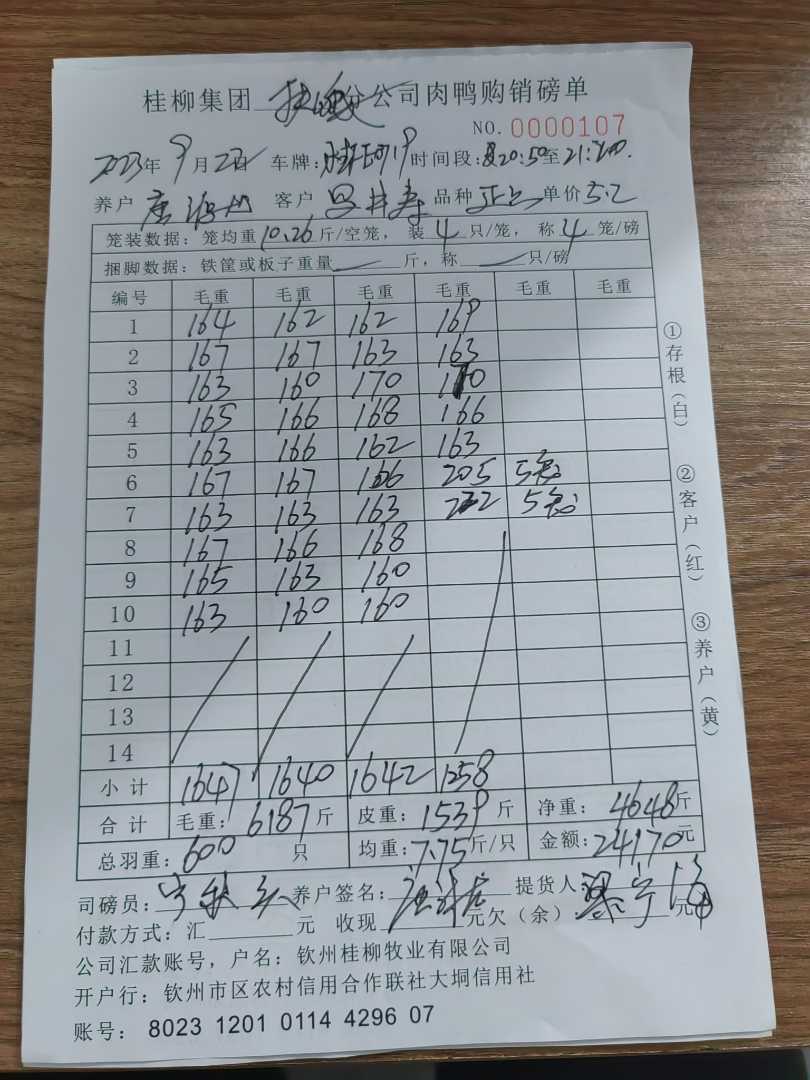 桂柳集团 分公司肉鸭购销磅单
NO. 0000107
2023年 9月2日 车牌: 时间段: 20:50至21:200.
养户 唐 客户 品种 单价5.2
笼装数据:笼均重10.26斤/空笼, 装4只/笼, 称4笼/磅
捆脚数据:铁筐或板子重量 斤,称 只/磅
编号 毛重 毛重 毛重 毛重 毛重 毛重
1 164 162 162 169
2 167 167 163 163
3 163 160 170 170
4 165 166 168 166
5 163 166 162 163
6 167 167 166 205 5笼
7 163 163 163 222 5笼
8 167 166 168
9 165 163 160
10 163 160 160
11
12
13
14
小计 1647 1640 1642 1258
合计 毛重:6187斤 皮重:1539斤 净重:4648斤
总羽重:600只 均重:7.75斤/只 金额:24170元
司磅员: 养户签名: 提货人
付款方式:汇 元 收现 元欠(余) 元
公司汇款账号,户名:钦州桂柳牧业有限公司
开户行:钦州市区农村信用合作联社大垌信用社
账号: 8023 1201 0114 4296 07
①存根(白)
②客户(红)
③养户(黄)